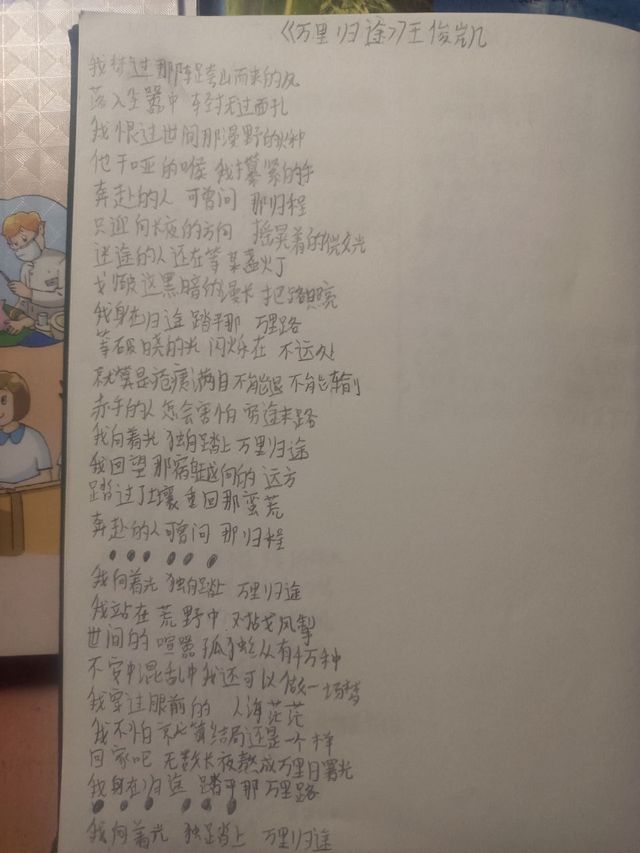 《万里归途》王俊凯
我 过那阵跨山而来的风
落入尘嚣中 轻 过面孔
我恨过世间那漫野的火种
他干哑的喉 我攥紧的手
奔赴的人 可曾问 那归程
只迎向长夜的方向 摇晃着的微光
迷途的人还在等 某盏火灯
划破这黑暗的漫长 把路照亮
我身在归途 踏平那 万里路
等破晓的光 闪烁在 不远处
就算是疮痍满目不能退 不能输
赤手的人 怎会害怕 穷途末路
我向着光 独自踏上 万里归途
我回望 那 的 远方
踏过土壤 重回那蛮荒
奔赴的人可曾问 那归程
我向着光 独自踏上 万里归途
我站在荒野中 对
世间的 喧嚣 孤独 有千万种
不安中混乱中我还可以做一场梦
我穿过眼前的 人海茫茫
我不怕 算结局还是一个样
回家吧 无数长夜熬成万里曙光
我身在归途 踏平那万里路
我向着光 独踏上 万里归途